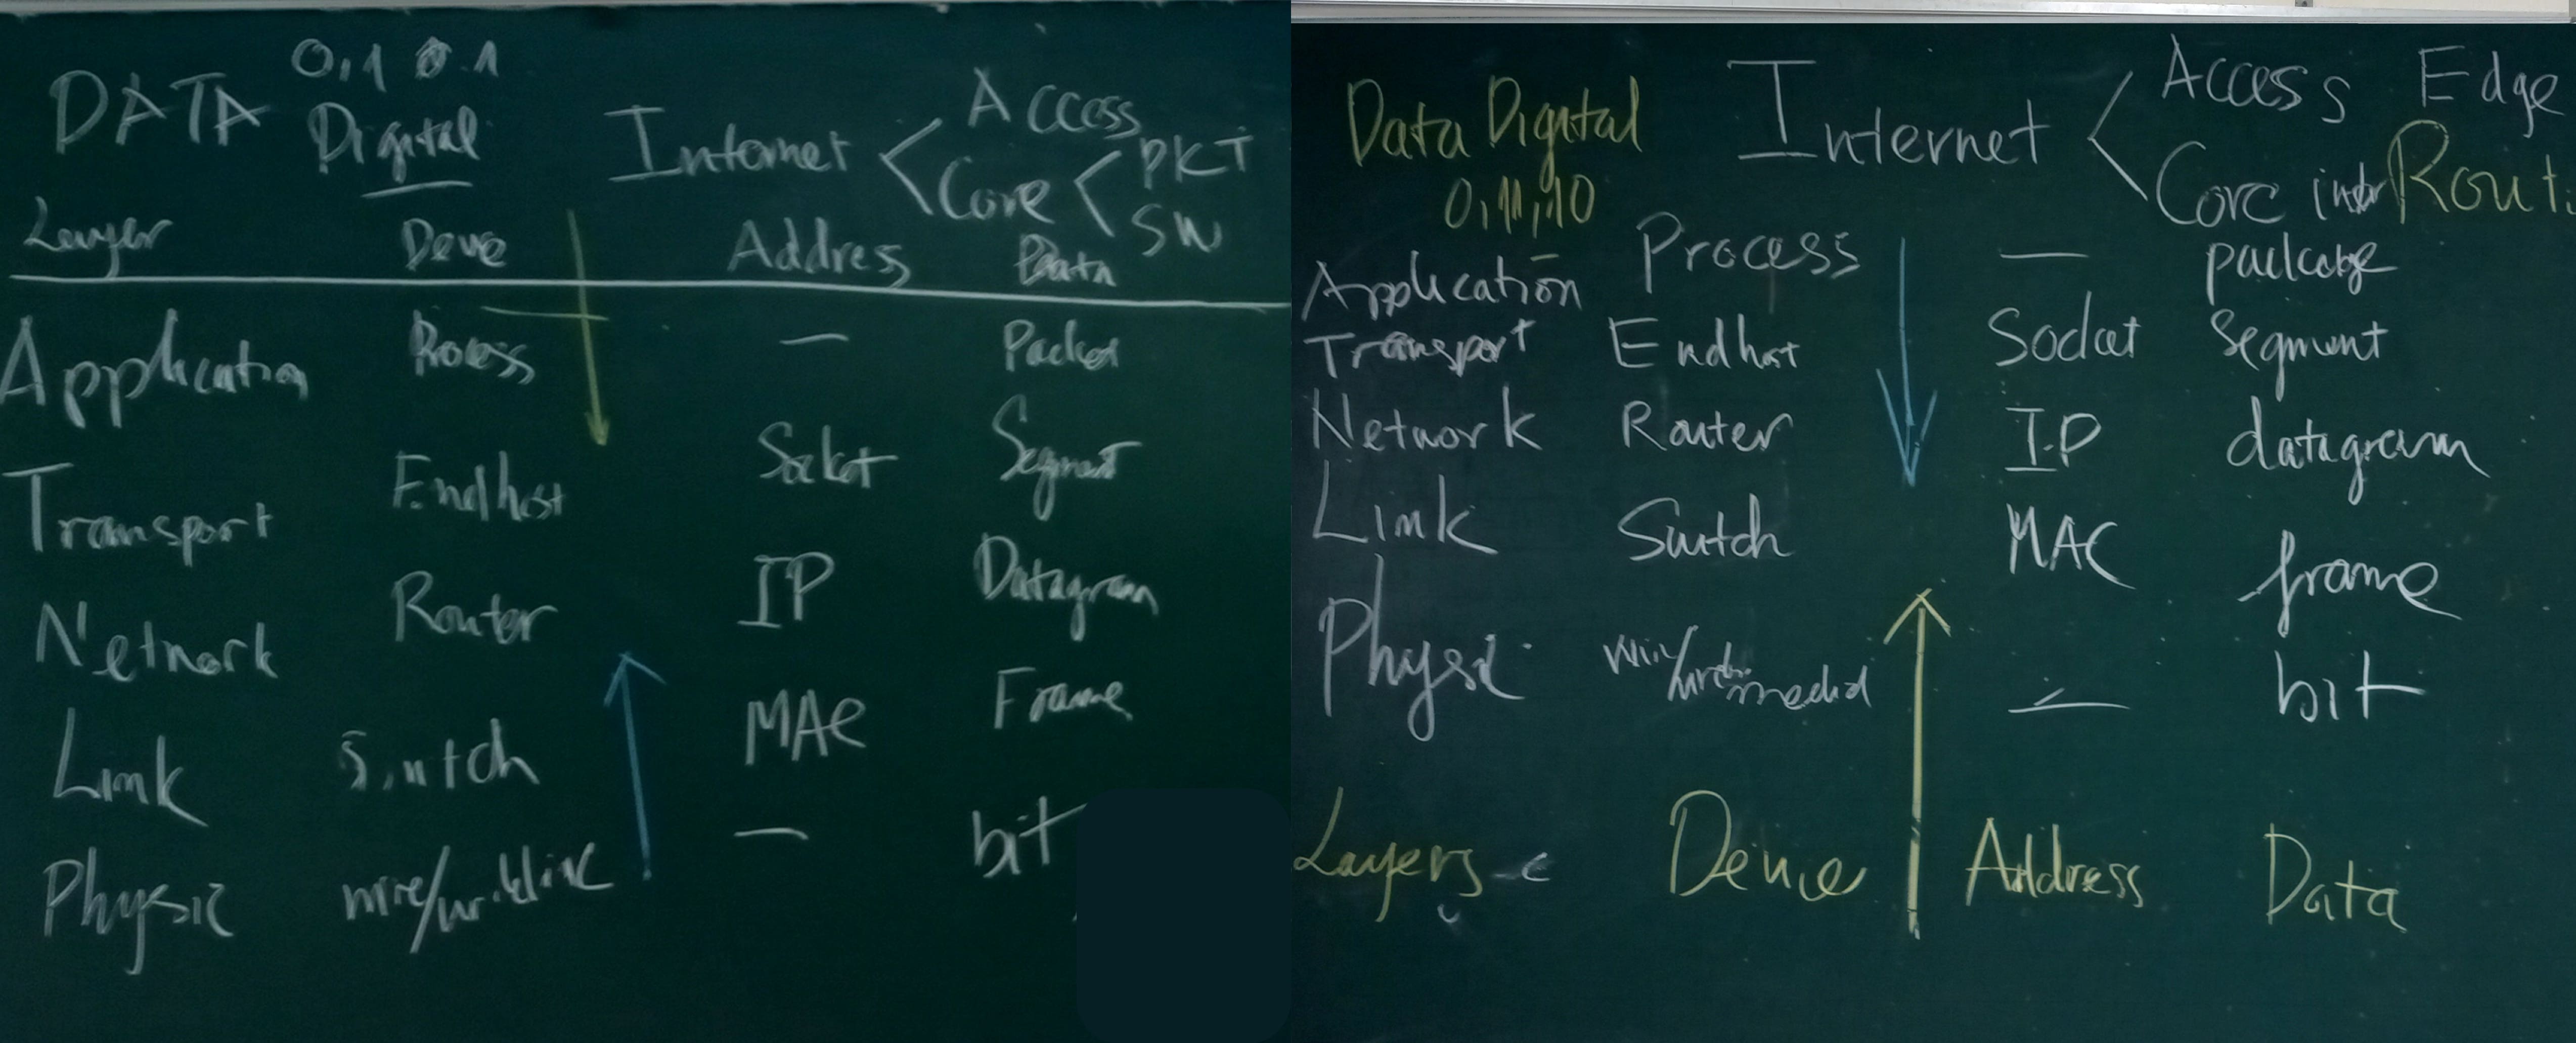 DATA 0,1 0.1
Digital
Internet < Access
Core < PKT
SW
Layer Device Address Data
Application Process — Packet
Transport Endhost Socket Segment
Network Router IP Datagram
Link Switch MAC Frame
Physic wire/ — bit
Data Digital Internet < Access Edge
0,11,10 Core Rout.
Application Process — package
Transport Endhost Socket Segment
Network Router IP datagram
Link Switch MAC frame
Physic — bit
Layers Device Address Data